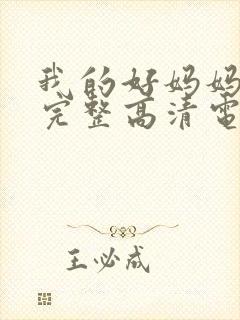 我的好妈妈
完整高清电
王必成